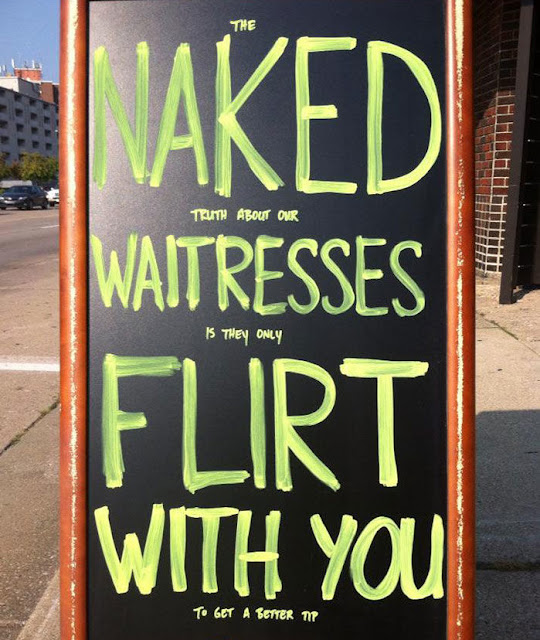 THE
NAKED
TRUTH ABOUT OUR
WAITRESSES
IS THEY ONLY
FLIRT
WITH YOU
TO GET A BETTER TIP